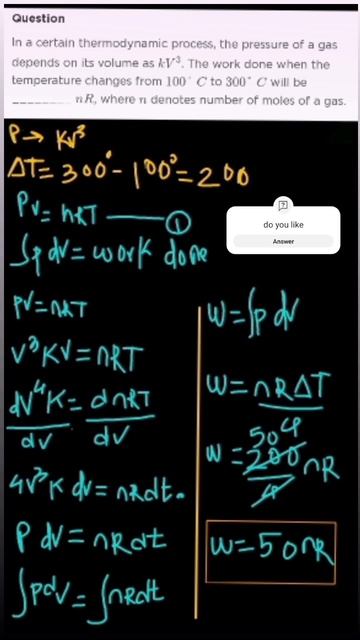 Question
In a certain thermodynamic process, the pressure of a gas
depends on its volume as kV³. The work done when the
temperature changes from 100° C to 300° C will be
________ nR, where n denotes number of moles of a gas.
P → KV³
ΔT = 300° - 100° = 200
PV = nRT ——— ①
∫p dV = work done
do you like
Answer
PV = nRT
V³KV = nRT
dV⁴K/dV = dnRT/dV
4V³K dV = nRdt.
P dV = nRdt
∫PdV = ∫nRdt
W = ∫p dV
W = nRΔT
4
W = 50 200/4 nR
W = 50nR